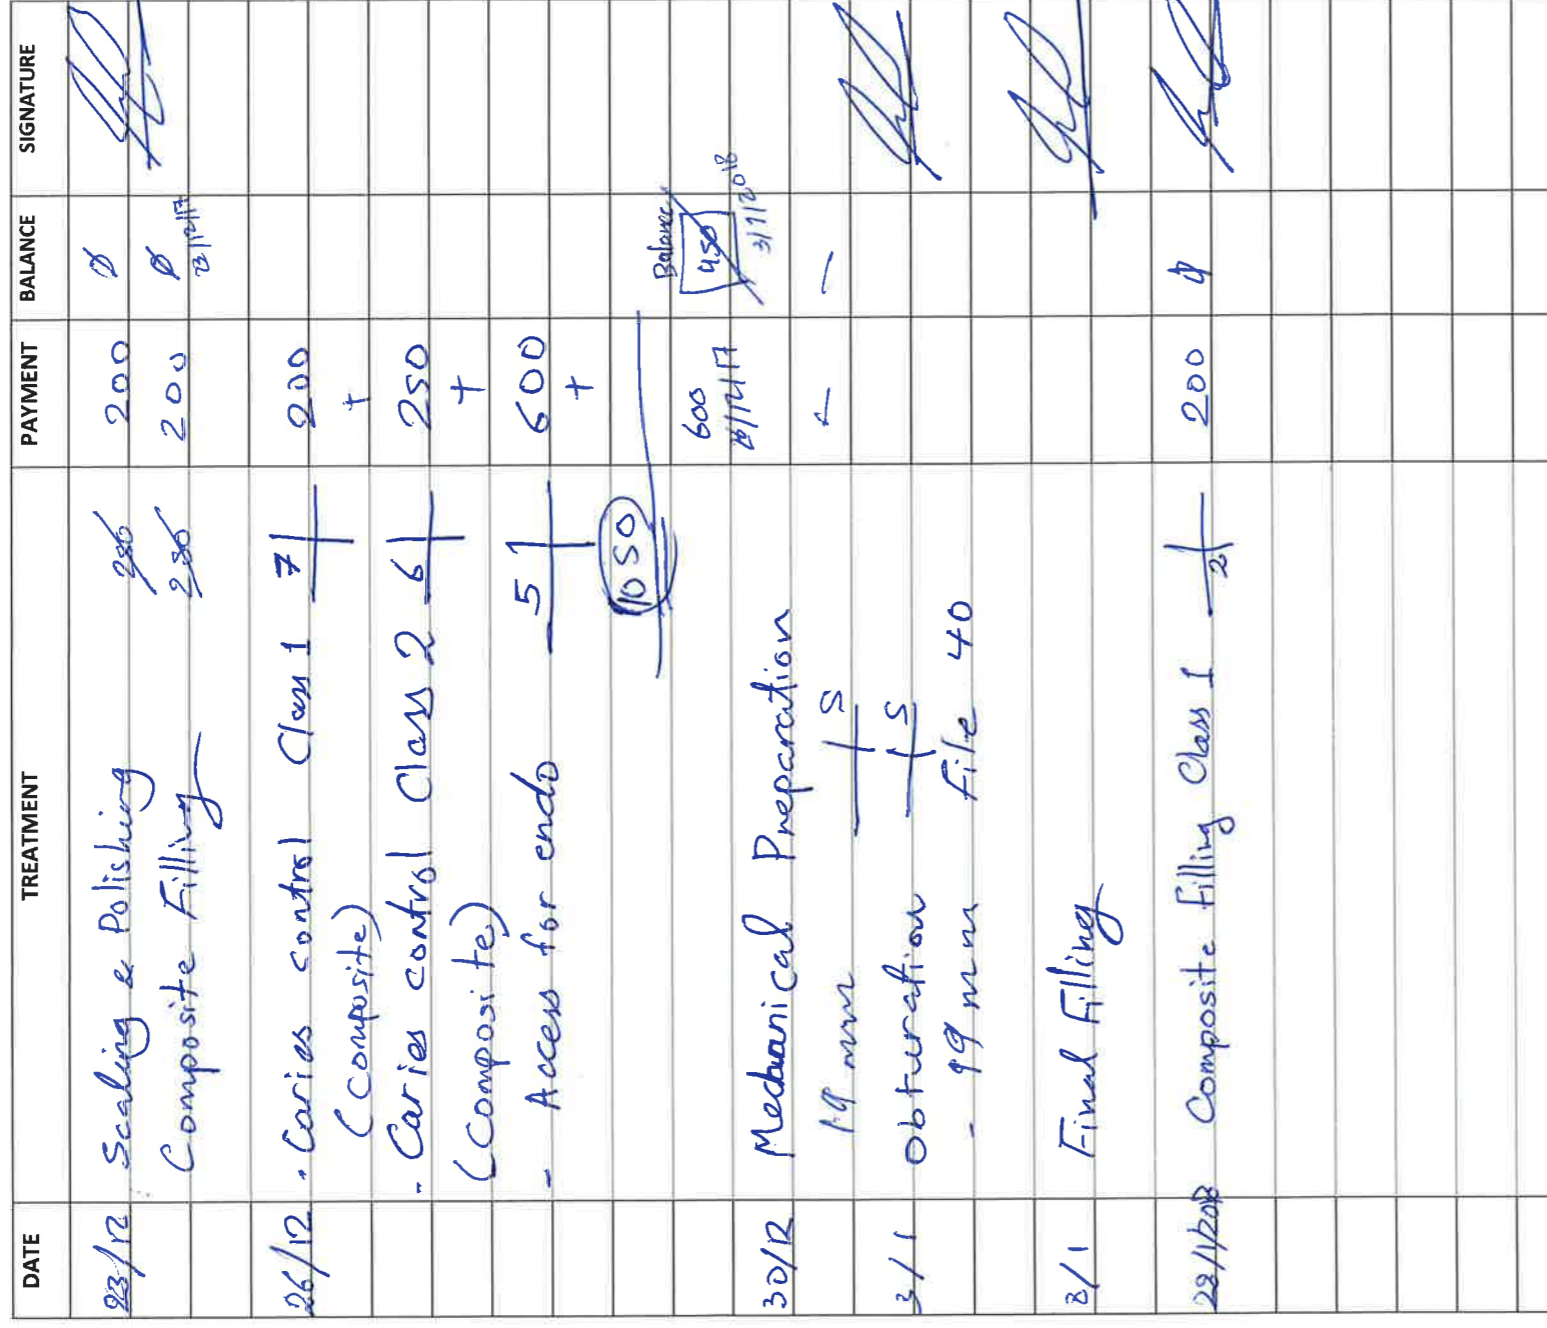 DATE TREATMENT PAYMENT BALANCE SIGNATURE
23/12 Scaling & Polishing 200 200 Ø
Composite Filling 250 200 Ø
23/12/17
26/12 - Caries control Class 1 7 200
(composite) +
- Caries control Class 2 6 250
(Composite) +
- Access for endo 5 600
+
1050
Balance
600 450
26/12/17 3/1/2018
30/12 Mechanical Preparation
19 mm 5 - -
3/1 Obturation 5
- 19 mm File 40
8/1 Final Filling
28/1/2018 Composite Filling Class 1 2 200 Ø